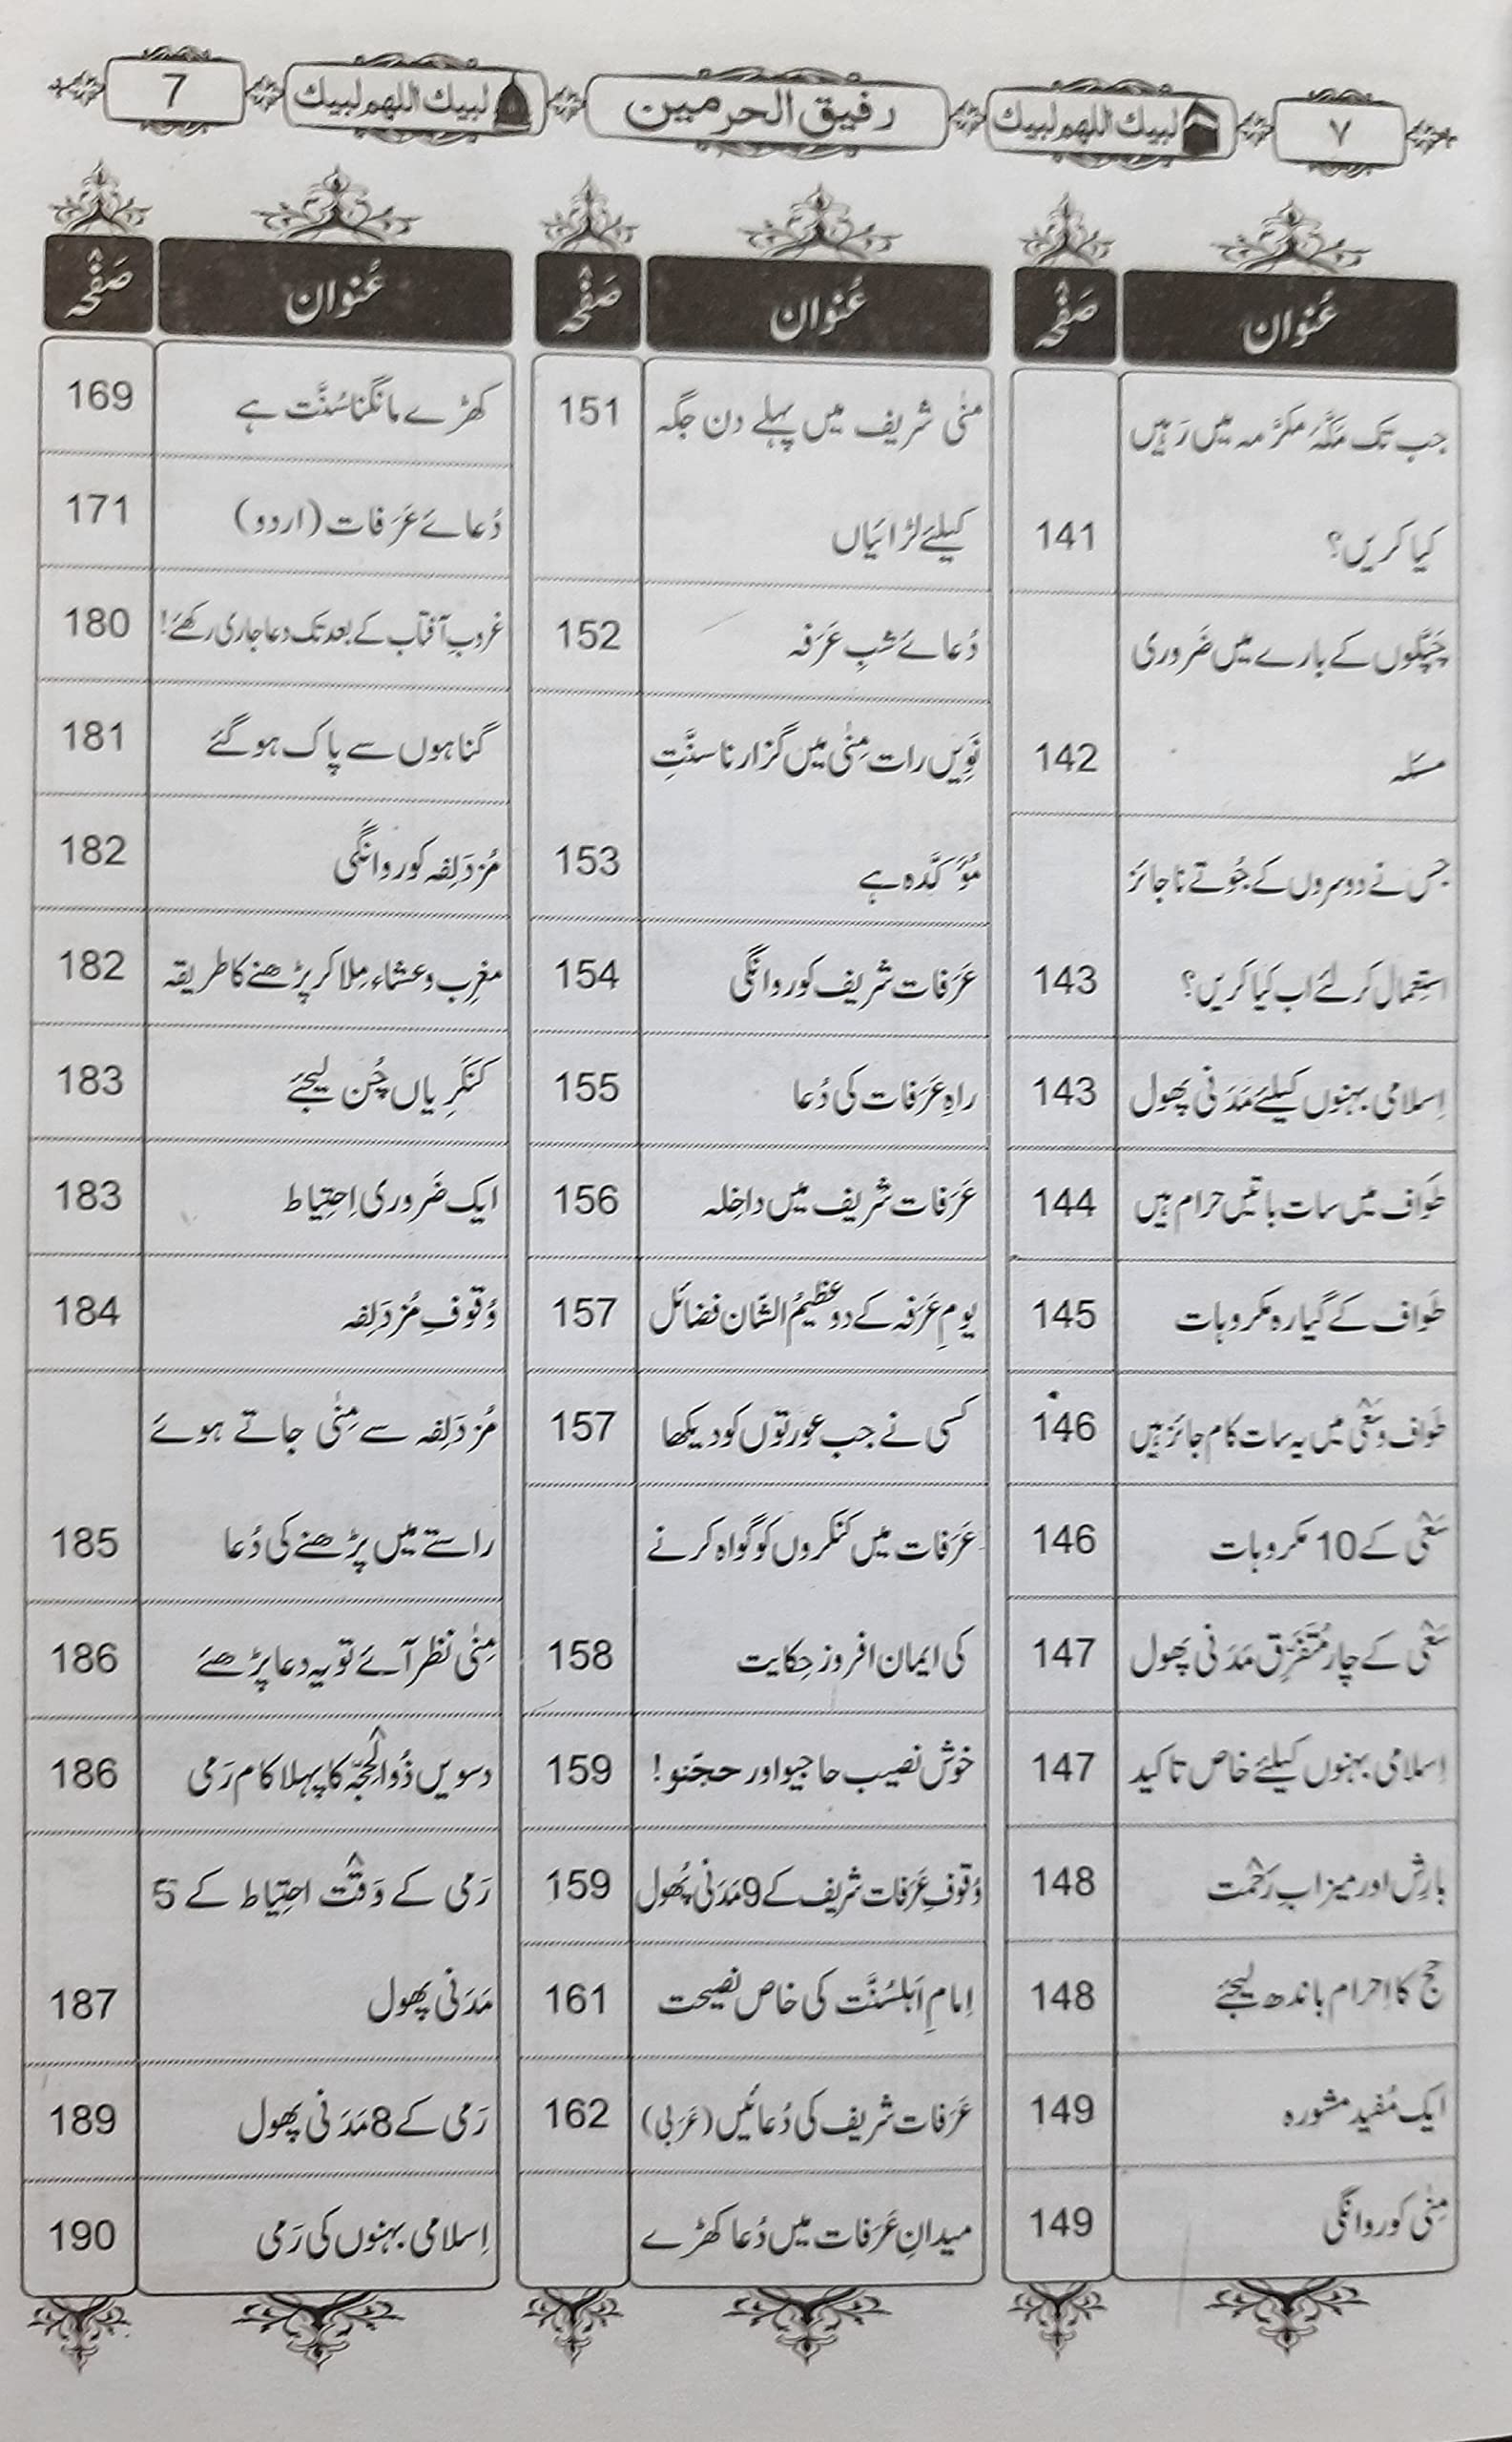 ۷ لبيك اللهم لبيك رفيق الحرمين لبيك اللهم لبيك 7
عُنوان صَفْحہ
جب تک مَکَّۂ مکرَّمہ میں رَہیں
کیا کریں؟ 141
چَپَّلوں کے بارے میں ضَروری
مسئلہ 142
جس نے دوسروں کے جُوتے ناجائز
استِعمال کر لئے اب کیا کریں؟ 143
اِسلامی بہنوں کیلئے مَدَنی پھول 143
طَواف میں سات باتیں حرام ہیں 144
طَواف کے گیارہ مکروہات 145
طَواف و سَعْی میں یہ سات کام جائز ہیں 146
سَعْی کے 10 مکروہات 146
سَعْی کے چار مُتَفَرِّق مَدَنی پھول 147
اِسلامی بہنوں کیلئے خاص تاکید 147
بارِش اور میزابِ رَحْمت 148
حج کا اِحرام باندھ لیجئے 148
ایک مُفید مشورہ 149
مِنٰی کو روانگی 149
عُنوان صَفْحہ
مِنٰی شریف میں پہلے دن جگہ 151
کیلئے لڑائیاں
دُعائے شبِ عَرَفہ 152
نَوِیں رات مِنٰی میں گزارنا سنَّتِ
مُؤَکَّدہ ہے 153
عَرَفات شریف کو روانگی 154
راہِ عَرَفات کی دُعا 155
عَرَفات شریف میں داخِلہ 156
یومِ عَرَفہ کے دو عظیمُ الشّان فضائل 157
کسی نے جب عورتوں کو دیکھا 157
عَرَفات میں کنکروں کو گواہ کرنے
کی ایمان افروز حِکایت 158
خوش نصیب حاجیو اور حجّنو! 159
وُقوفِ عَرَفات شریف کے 9 مَدَنی پُھول 159
اِمامِ اَہلسُنَّت کی خاص نصیحت 161
عَرَفات شریف کی دُعائیں (عَرَبی) 162
میدانِ عَرَفات میں دُعا کھڑے
عُنوان صَفْحہ
کھڑے مانگنا سُنَّت ہے 169
دُعائے عَرَفات (اردو) 171
غروبِ آفتاب کے بعد تک دعا جاری رکھئے! 180
گناہوں سے پاک ہو گئے 181
مُزدَلِفہ کو روانگی 182
مغرِب و عشاء مِلا کر پڑھنے کا طریقہ 182
کنکَرِیاں چُن لیجئے 183
ایک ضَروری اِحتِیاط 183
وُقوفِ مُزدَلِفہ 184
مُزدَلِفہ سے مِنٰی جاتے ہوئے
راستے میں پڑھنے کی دُعا 185
مِنٰی نظر آئے تو یہ دعا پڑھئے 186
دسویں ذُوالحِجّہ کا پہلا کام رَمی 186
رَمی کے وَقْت احتِیاط کے 5
مَدَنی پھول 187
رَمی کے 8 مَدَنی پھول 189
اِسلامی بہنوں کی رَمی 190